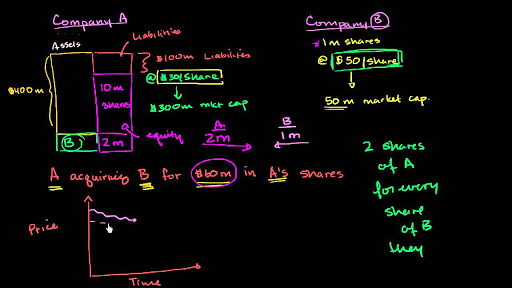 Company A
Liabilities
Assets
$100m Liabilities
@ $30/share
$400m
10m
shares
$300m mkt cap
(B)
2m
equity
A
2m
B
1m
Company B
1m shares
@ $50/share
50m market cap.
A acquiring B for $60m in A's shares
2 shares
of A
for every
share
of B
they
Price
Time